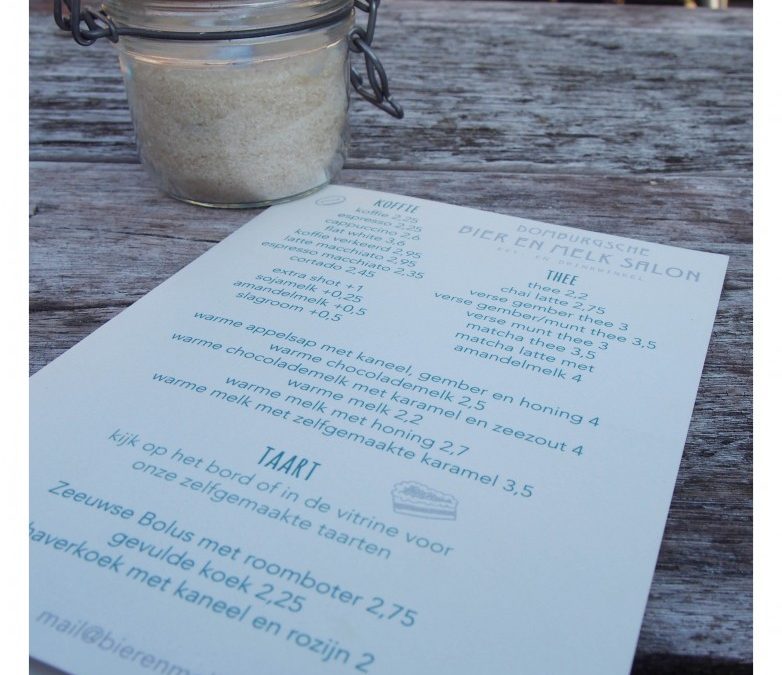 DOMBURGSCHE
BIER EN MELK SALON
EET- EN DRINKWINKEL
KOFFIE
koffie 2,25
espresso 2,25
cappuccino 2,6
flat white 3,6
koffie verkeerd 2,95
latte macchiato 2,95
espresso macchiato 2,35
cortado 2,45
extra shot +1
sojamelk +0,25
amandelmelk +0,5
slagroom +0,5
THEE
thee 2,2
chai latte 2,75
verse gember thee 3
verse gember/munt thee 3,5
verse munt thee 3
matcha thee 3,5
matcha latte met
amandelmelk 4
warme appelsap met kaneel, gember en honing 4
warme chocolademelk 2,5
warme chocolademelk met karamel en zeezout 4
warme melk 2,2
warme melk met honing 2,7
warme melk met zelfgemaakte karamel 3,5
TAART
kijk op het bord of in de vitrine voor
onze zelfgemaakte taarten
Zeeuwse Bolus met roomboter 2,75
gevulde koek 2,25
haverkoek met kaneel en rozijn 2